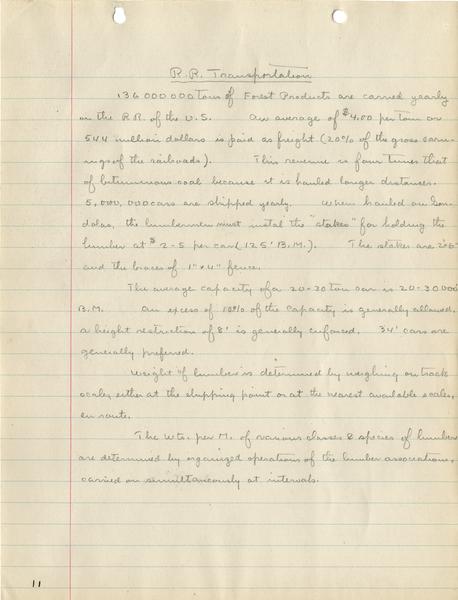 R.R. Transportation
136 000 000 tons of Forest Products are carried yearly
on the RR. of the U.S. An average of $4.00 per ton or
544 million dollars is paid as freight (20% of the gross earn-
ings of the railroads). This revenue is four times that
of bituminous coal because it is hauled longer distances.
5,000,000 cars are shipped yearly. When hauled on Gon-
dolas, the lumbermen must instal the "stakes" for holding the
lumber at $2-5 per car (125' B.M.). The stakes are
and the braces of 1" x 4" fence.
The average capacity of a 20-30 ton car is 20-30 000
B.M. An excess of 10% of the capacity is generally allowed.
a height restriction of 8' is generally enforced. 34' cars are
generally preferred.
Weight of lumber is determined by weighing on track
scales, either at the shipping point or at the nearest available scales,
en route.
The wts. per M. of various classes & species of lumber
are determined by organized operations of the lumber associations,
carried on simultaneously at intervals.
11